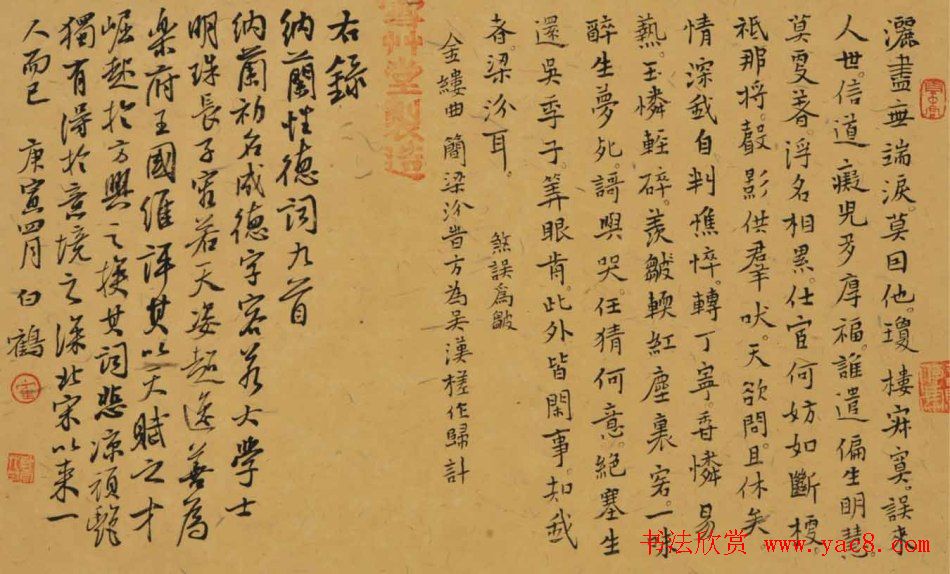 灑盡無端淚。莫因他。瓊樓寂寞。誤来
人世。信道癡児多厚福。誰遣偏生明慧。
莫更著。浮名相累。仕宦何妨如斷梗
祇那將。聲影供羣吠。天欲問。且休矣
情深我自判憔悴。轉丁寧。香憐易
爇。玉憐輕碎。羨皺軟紅塵裏客。一味
醉生夢死。謌與哭。任猜何意。絕塞生
還吳季子。筭眼肯。此外皆閒事。知我
者。梁汾耳。 煞誤為皺
金縷曲 簡梁汾昔方為吳漢槎作歸計
艸堂製造
右錄
納蘭性德詞九首
納蘭初名成德字容若大學士
明珠長子容若天姿超逸善為
樂府王國維評其以天賦之才
崛起於方興之族其詞悲凉頑艷
獨有得於意境之深北宋以来一
人而已 庚寅四月 白鶴
书法欣赏 www.yac8.com